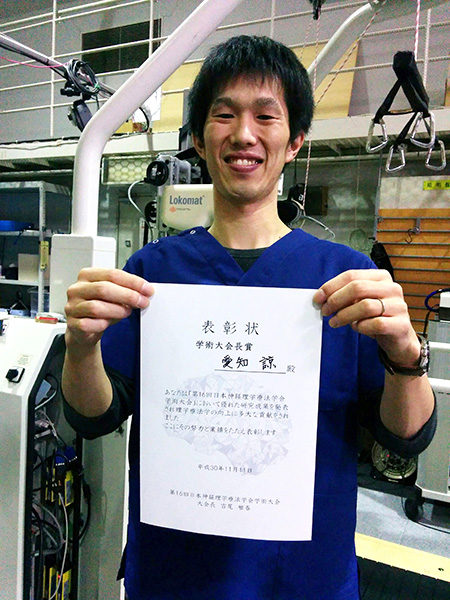 Lokomat®
表彰状
学術大会長賞
愛知 諒 殿
あなたは「第16回日本神経理学療法学会
学術大会」において優れた研究成果を発表
され理学療法学の向上に多大な貢献をされ
ました
ここにその努力と業績をたたえ表彰します
平成30年11月11日
第16回日本神経理学療法学会学術大会
大会長 吉尾 雅春